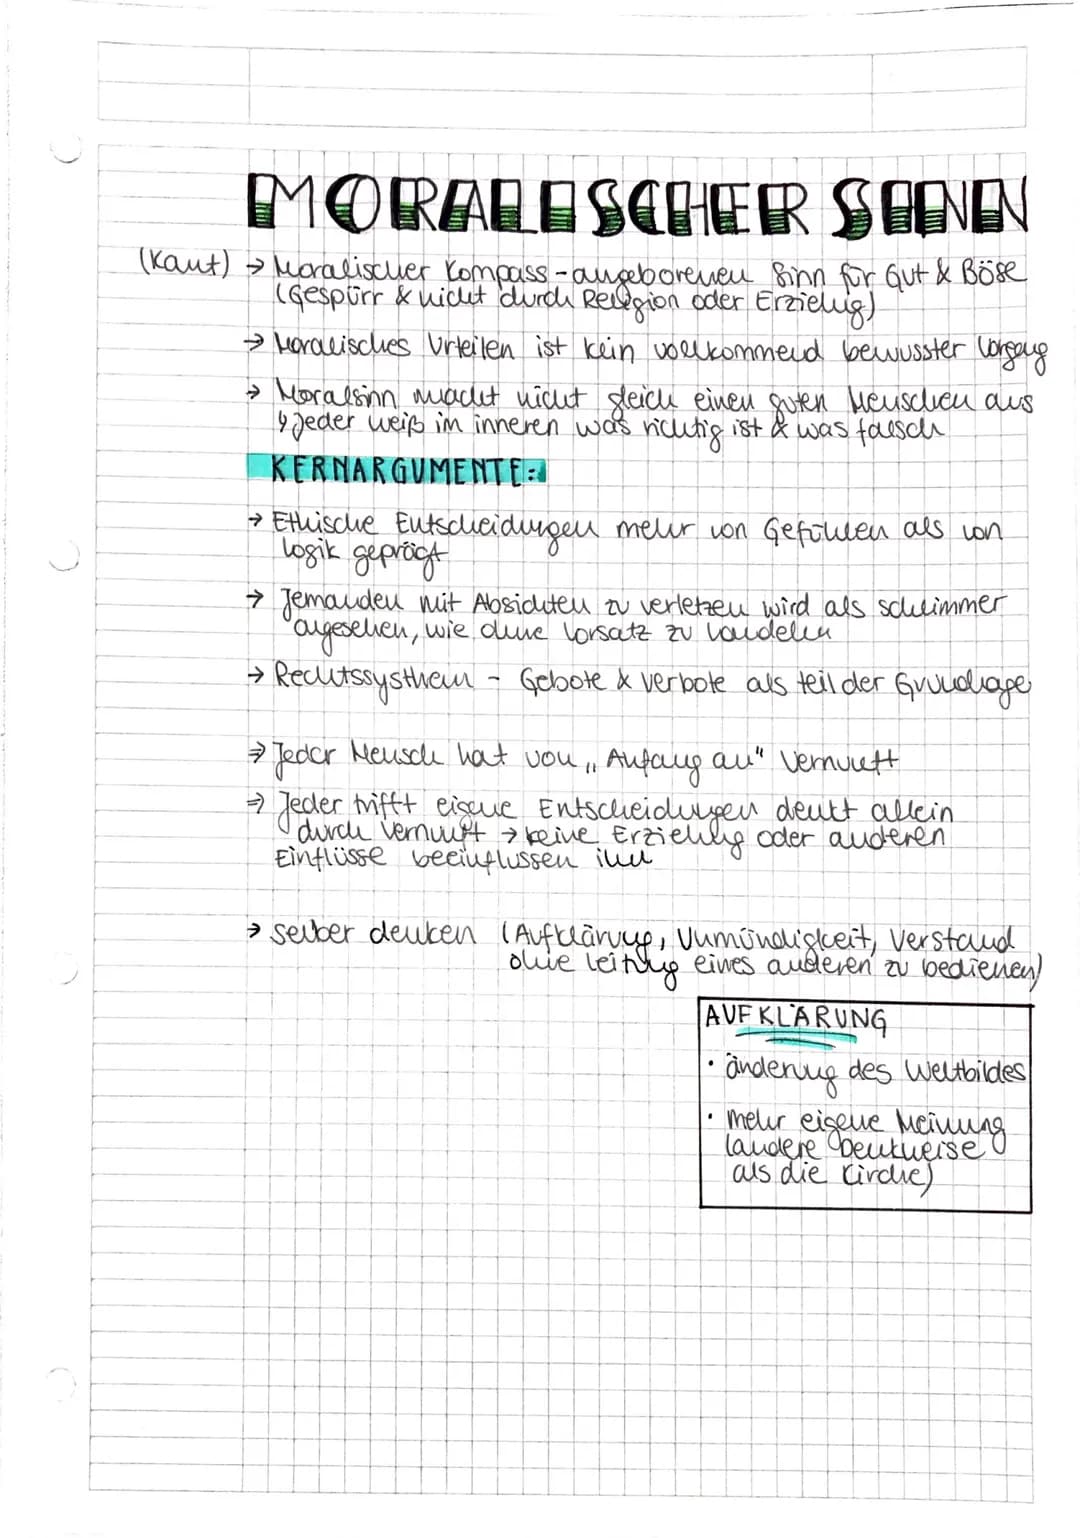 MORALISCHER SINN
(Kant) → Moralischer Kompass - angeborenen Sinn für Gut & Böse
(Gespürr & nicht durch Religion oder Erziehug)
→ Moralisches Urteilen ist kein vollkommend bewusster Vorgang
→ Moralsinn macht nicht gleich einen guten Menschen aus
↳ Jeder weiß im inneren was richtig ist & was falsch
KERNARGUMENTE:
→ Ethische Entscheidungen mehr von Gefühlen als von
Logik geprägt
→ Jemanden mit Absichten zu verletzen wird als schlimmer
angesehen, wie ohne Vorsatz zu handeln
→ Rechtssysthem - Gebote & Verbote als teil der Grundlage
⇒ Jeder Mensch hat von „Anfang an" Vernunft
⇒ Jeder trifft eigene Entscheidungen denkt allein
durch Vernunft → keine Erziehung oder anderen
Einflüsse beeinflussen ihn
→ selber denken (Aufklärung, Unmündigkeit, Verstand
ohne Leitung eines anderen zu bedienen)
AUFKLÄRUNG
• änderung des Weltbildes
• mehr eigene Meinung
(andere Denkweise
als die Kirche)